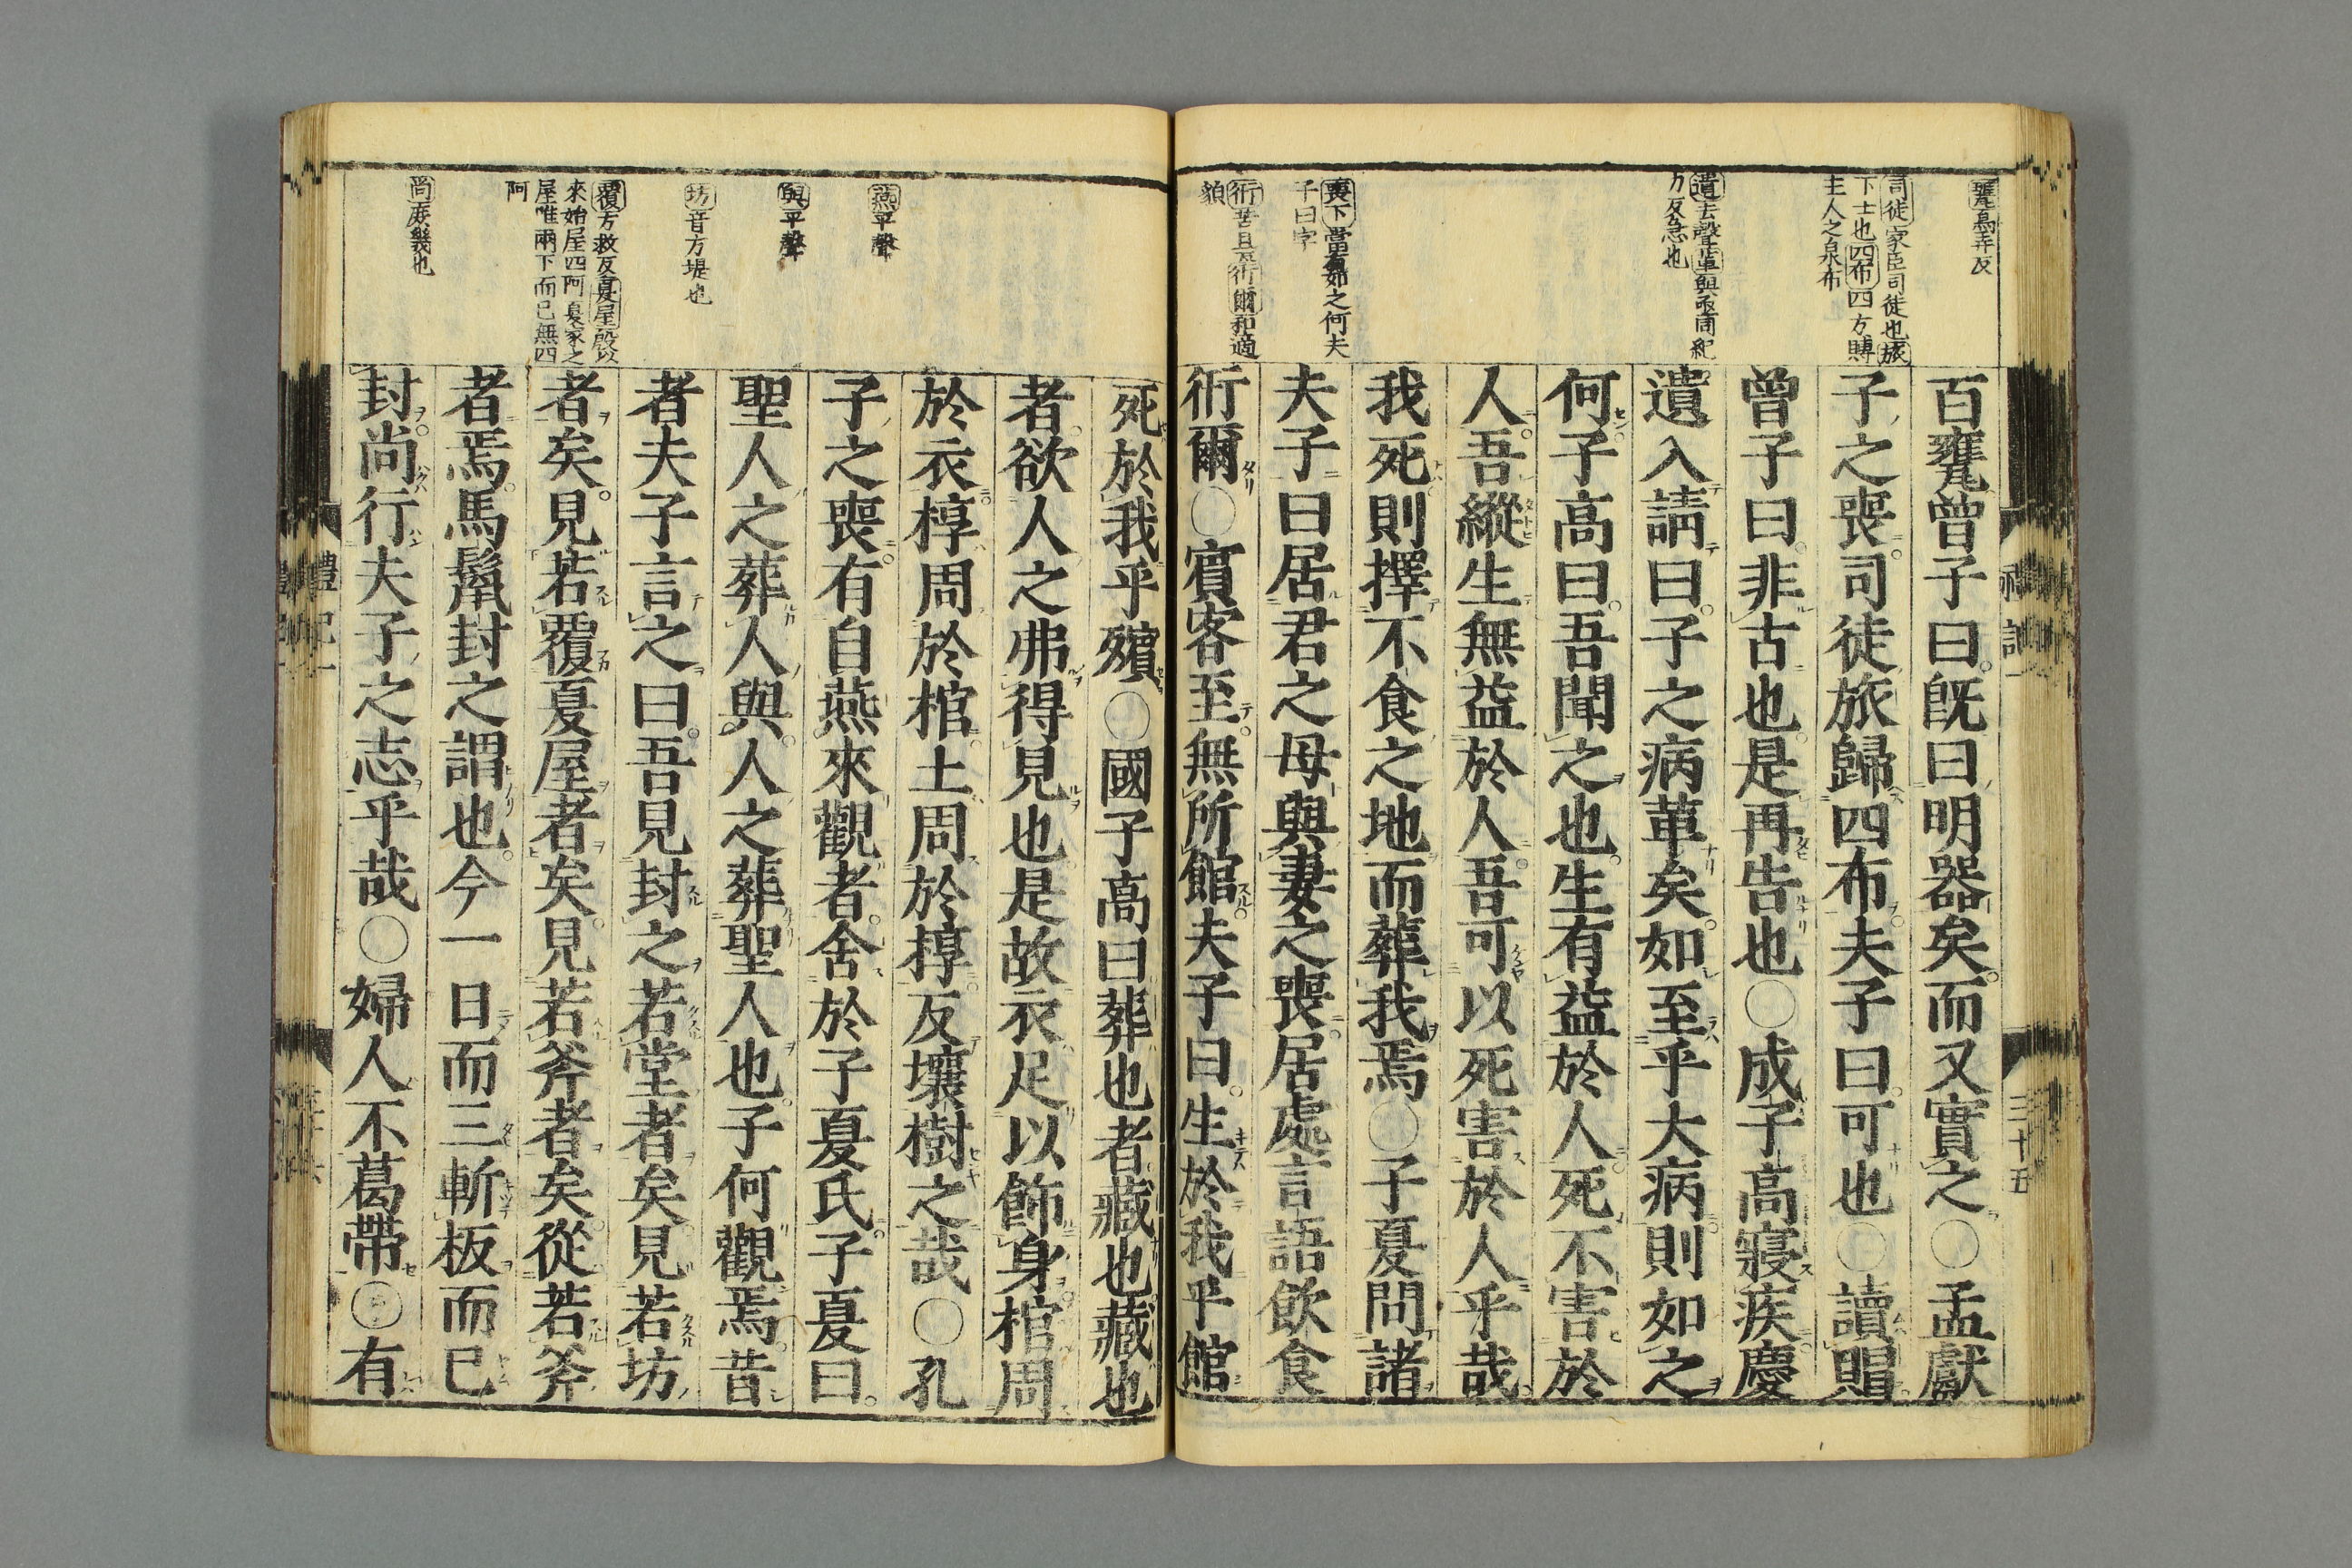 甕烏弄反
司徒家臣司徒也旅
下士也四布四方賻
主人之泉布
遺去聲革與亟同紀
力反急也
喪下當有如之何夫
子曰字
衎苦旦反衎爾和適
貌
百甕曾子曰既曰明器矣而又實之○孟獻
子之喪司徒旅歸四布夫子曰可也○讀賵
曾子曰非古也是再告也○成子高寢疾慶
遺入請曰子之病革矣如至乎大病則如之
何子高曰吾聞之也生有益於人死不害於
人吾縱生無益於人吾可以死害於人乎哉
我死則擇不食之地而葬我焉○子夏問諸
夫子曰居君之母與妻之喪居處言語飲食
衎爾○賓客至無所館夫子曰生於我乎館
禮記一
三十五
燕平聲
與平聲
坊音方堤也
覆方救反夏屋殷以
來始屋四阿夏家之
屋唯兩下而已無四
阿
尚庶幾也
死於我乎殯○國子高曰葬也者藏也藏也
者欲人之弗得見也是故衣足以飾身棺周
於衣椁周於棺土周於椁反壤樹之哉○孔
子之喪有自燕來觀者舍於子夏氏子夏曰
聖人之葬人與人之葬聖人也子何觀焉昔
者夫子言之曰吾見封之若堂者矣見若坊
者矣見若覆夏屋者矣見若斧者矣從若斧
者焉馬鬣封之謂也今一日而三斬板而已
封尚行夫子之志乎哉○婦人不葛帶○有
禮記一